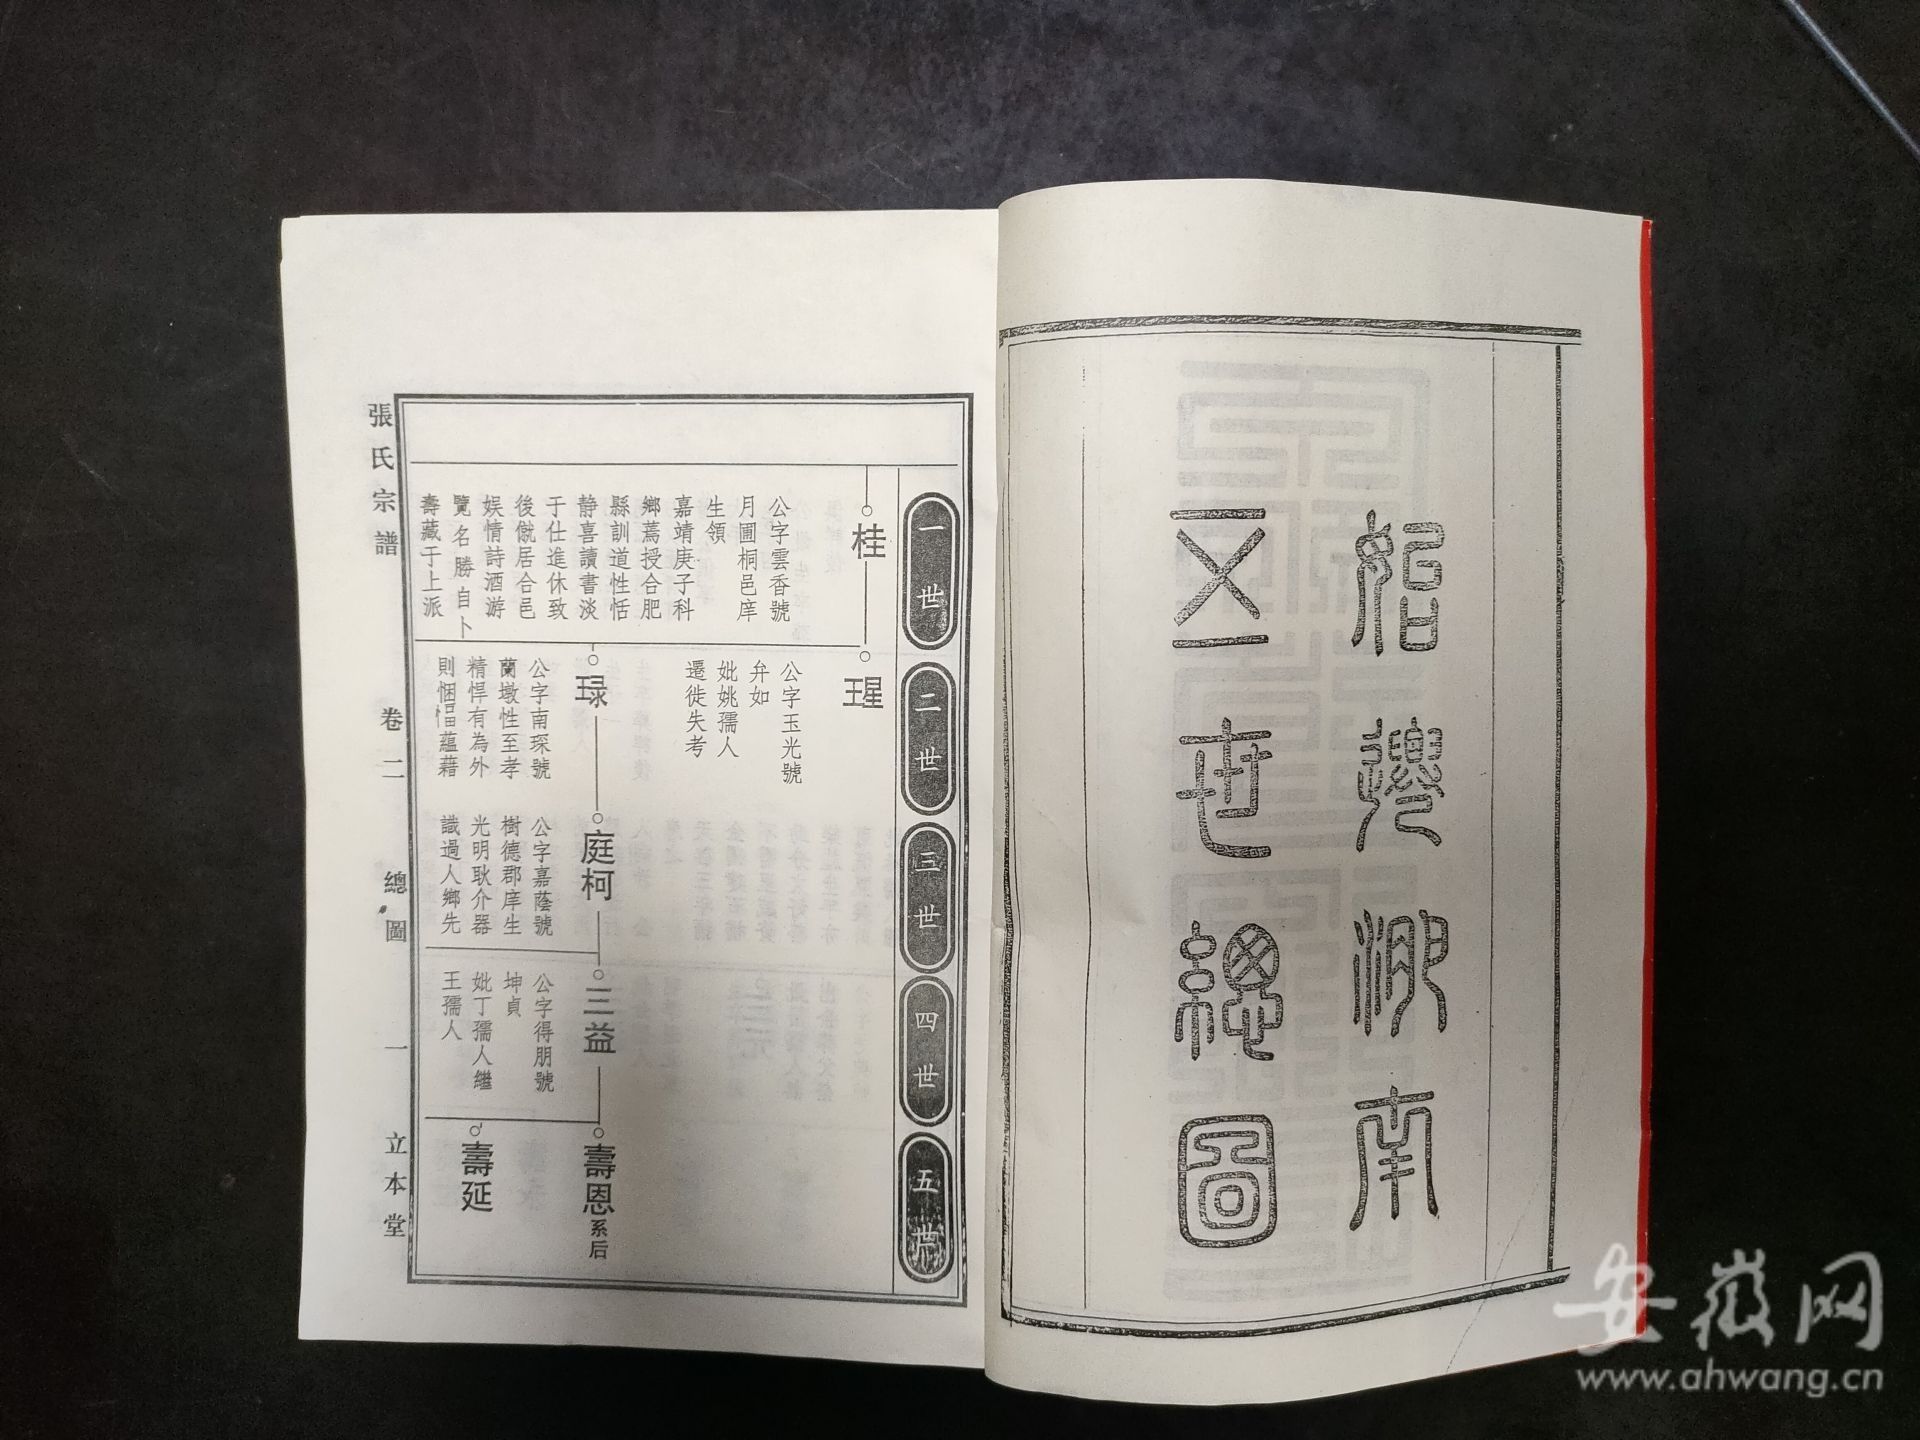 灣 南
五世總圖
一世
二世
三世
四世
五世
桂
公字雲香號
月圃桐邑庠
生領
嘉靖庚子科
鄉薦授合肥
縣訓道性恬
静喜讀書淡
于仕進休致
後僦居合邑
娱情詩酒游
覽名勝自卜
壽藏于上派
瑆
公字玉光號
弁如
妣姚孺人
遷徙失考
琭
公字南琛號
蘭墩性至孝
精悍有為外
則悃愊蘊藉
庭柯
公字嘉蔭號
樹德郡庠生
光明耿介器
識過人鄉先
三益
公字得朋號
坤貞
妣丁孺人繼
王孺人
壽恩系后
壽延
張氏宗譜 卷二 總圖 一 立本堂
安徽网
www.ahwang.cn